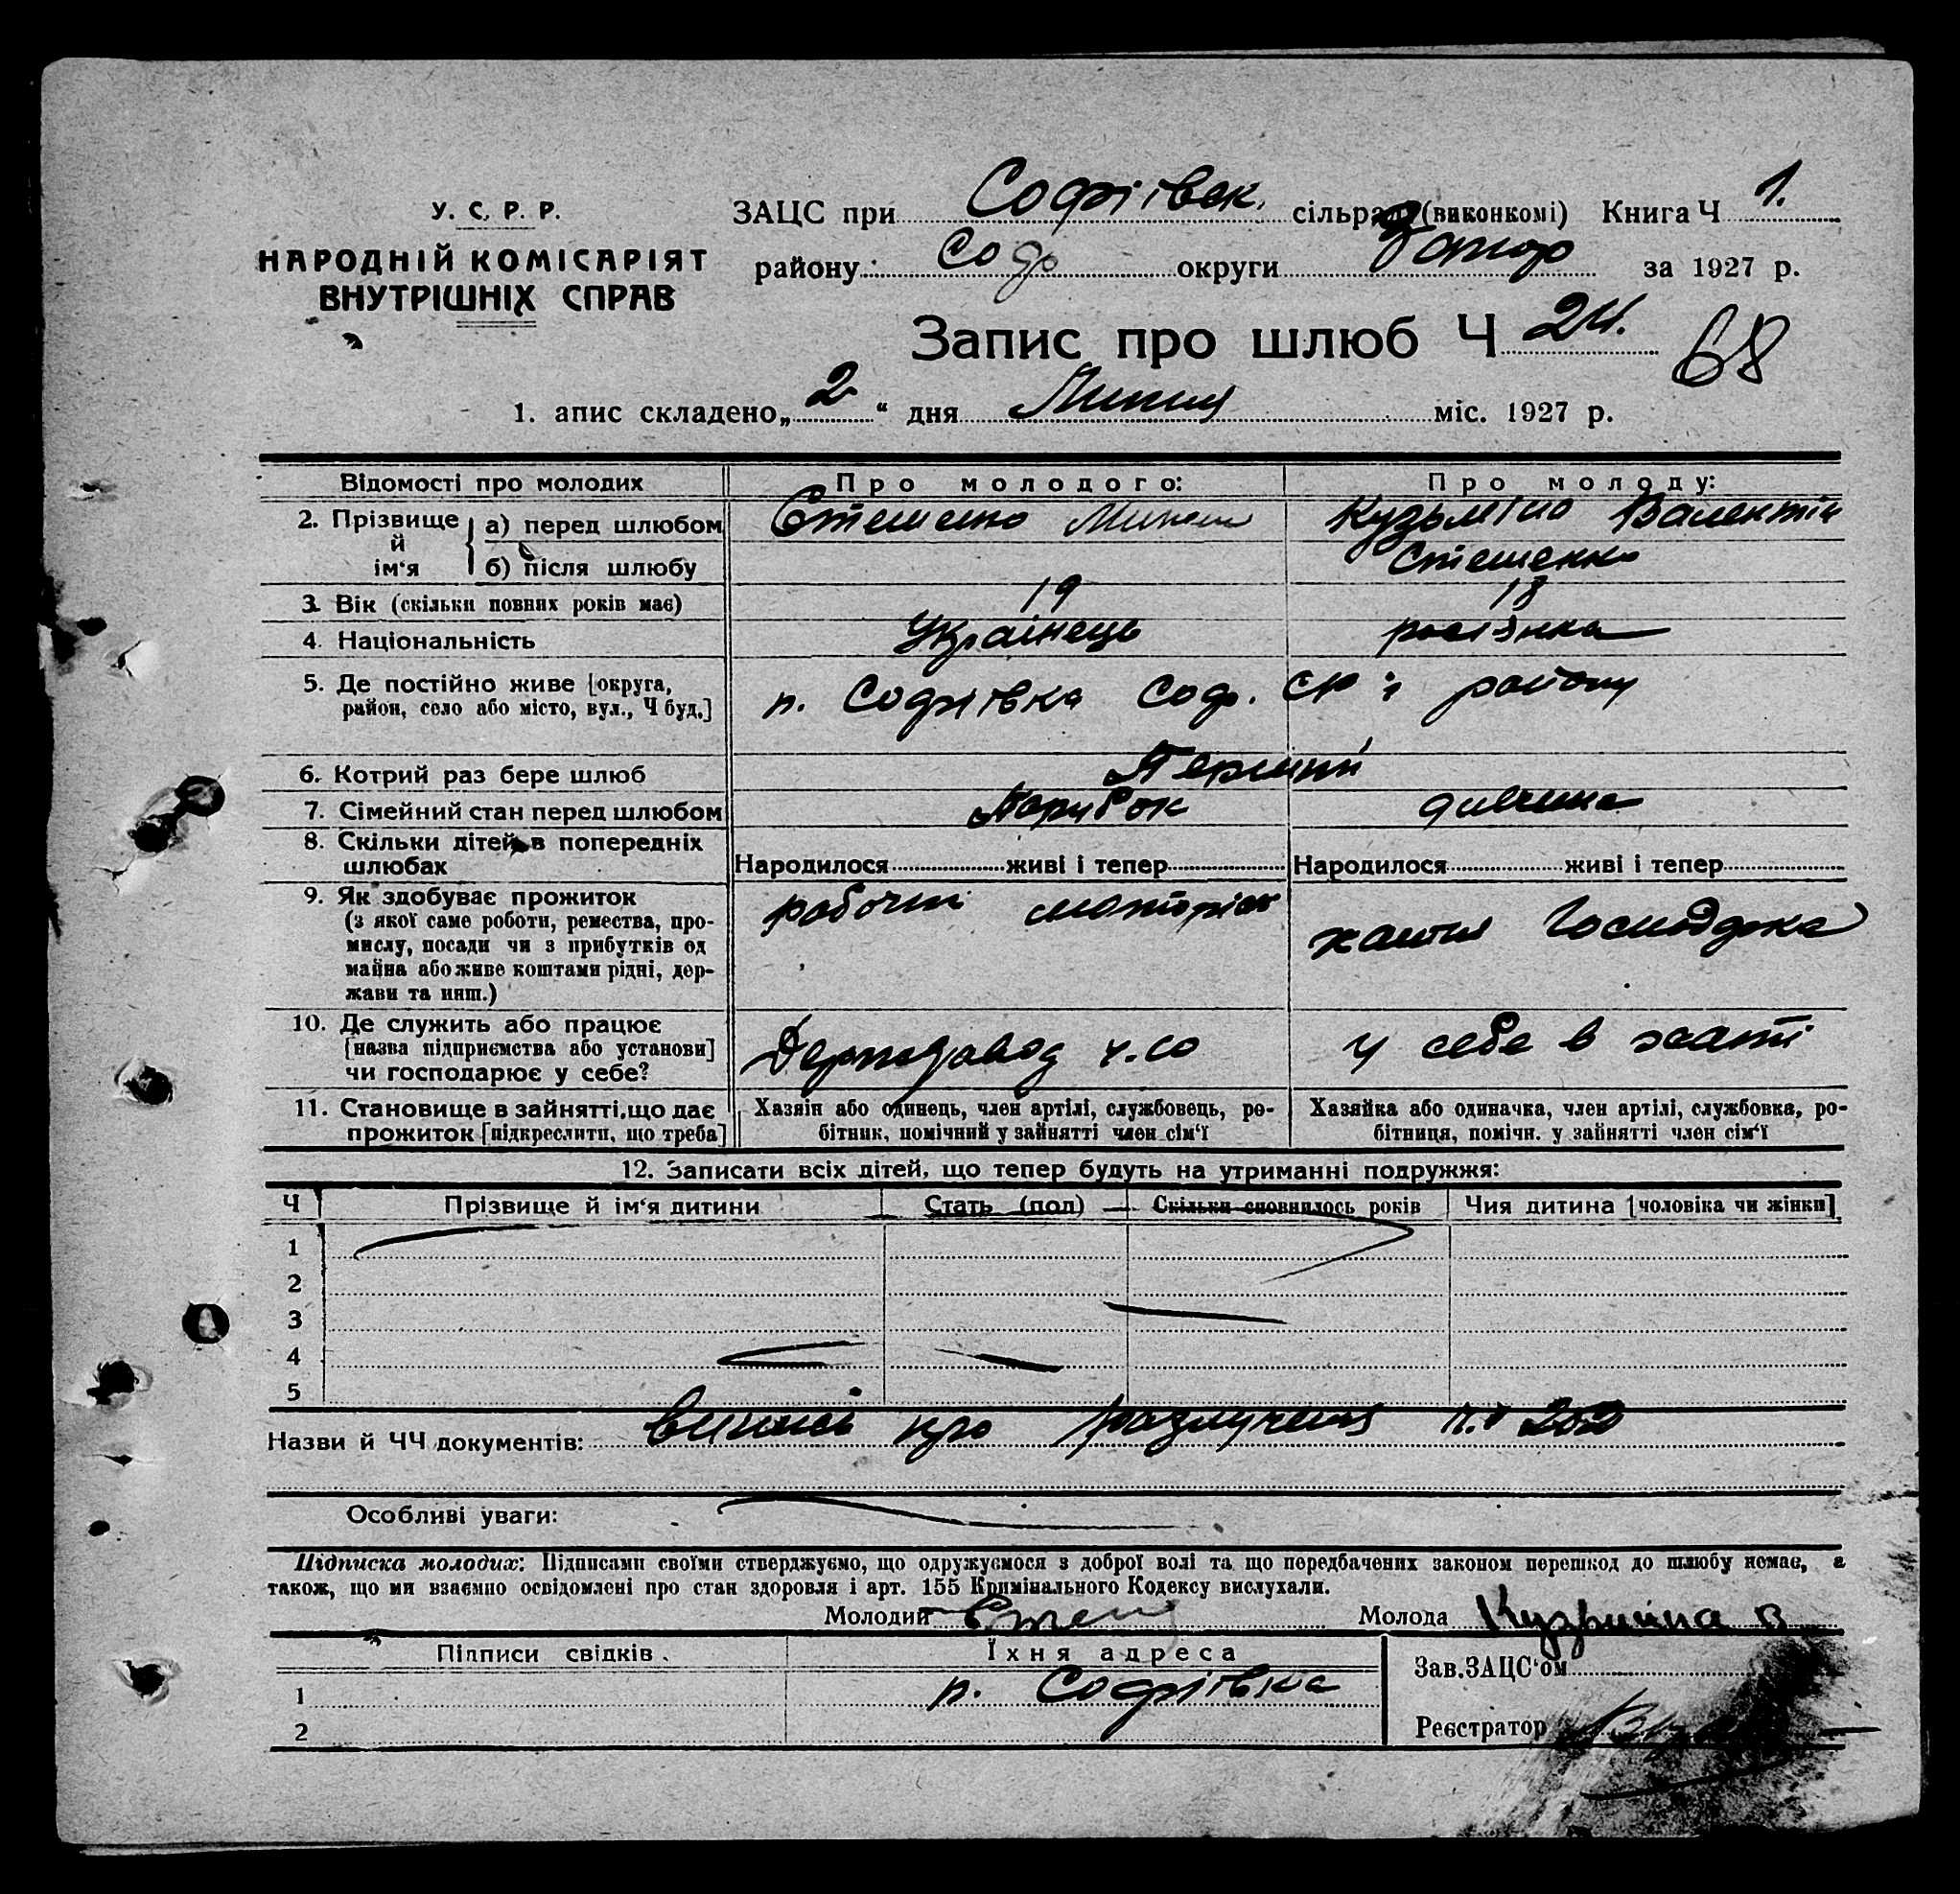 У. С. Р. Р.
НАРОДНІЙ КОМІСАРІЯТ
ВНУТРІШНІХ СПРАВ
ЗАЦС при Софіївск. сільраді (виконкомі) Книга Ч 1.
району Соф округи Запор за 1927 р.
Запис про шлюб Ч 24.
68
1. апис складено „2“ дня Липня міс. 1927 р.
Відомості про молодих Про молодого: Про молоду:
2. Прізвище й ім'я а) перед шлюбом Стешенко Кузьміна Валентін
б) після шлюбу Стешенко
3. Вік (скільки повних років має) 19 18
4. Національність Українець росіянка
5. Де постійно живе [округа,
район, село або місто, вул., Ч буд.] п. Софіївка Соф. СР і району
6. Котрий раз бере шлюб Перший
7. Сімейний стан перед шлюбом Парубок дивчина
8. Скільки дітей в попередніх
шлюбах Народилося живі і тепер Народилося живі і тепер
9. Як здобуває прожиток
(з якої саме роботи, ремества, про-
мислу, посади чи з прибутків од
майна або живе коштами рідні, дер-
жави та инш.)
робочий моторіст
хатня Господрка
10. Де служить або працює
[назва підприємства або установи]
чи господарює у себе?
у себе в хаті
11. Становище в зайнятті, що дає
прожиток [підкреслити, що треба]
Хазяїн або одинець, член артілі, службовець, ро-
бітник, помічний у зайнятті член сім'ї
Хазяйка або одиначка, член артілі, службовка, ро-
бітниця, помічн. у зайнятті член сім'ї
12. Записати всіх дітей, що тепер будуть на утриманні подружжя:
Ч Прізвище й ім'я дитини Стать (пол) Скільки сповнилось років Чия дитина [чоловіка чи жінки]
1
2
3
4
5
Назви й ЧЧ документів: про 202
Особливі уваги:
Підписка молодих: Підписами своїми стверджуємо, що одружуємося з доброї волі та що передбачених законом перешкод до шлюбу немає, а
також, що ми взаємно освідомлені про стан здоровля і арт. 155 Кримінального Кодексу вислухали.
Молодий Молода Кузьміна В
Підписи свідків. Їхня адреса
1 п. Софіївка
2
Зав. ЗАЦС'ом
Реєстратор